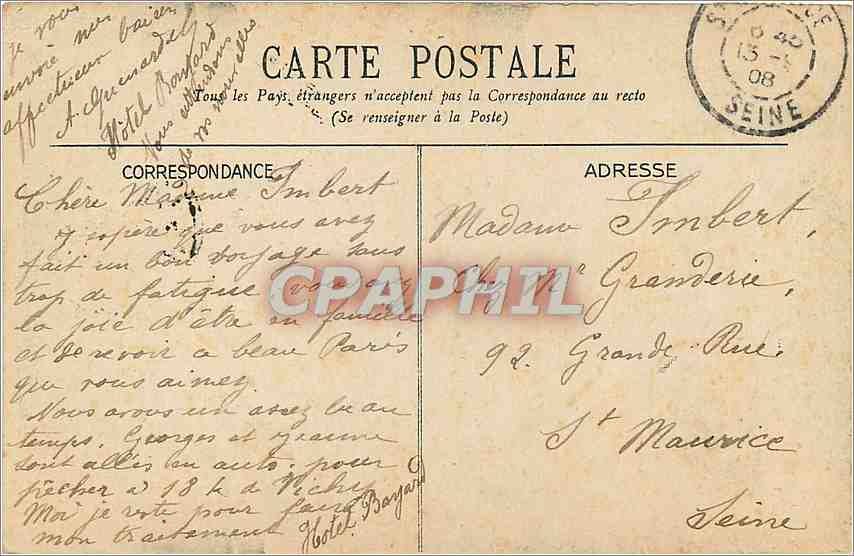 CARTE POSTALE
Tous les Pays étrangers n'acceptent pas la Correspondance au recto
(Se renseigner à la Poste)
CORRESPONDANCE
Chère Madame Imbert
J'espère que vous avez
fait un bon voyage sans
trop de fatigue, vous avez
la joie d'être en famille
et de revoir ce beau Paris
que vous aimez
Nous avons un assez beau
temps. Georges et Jeanne
sont allés en auto pour
pêcher à 18 k de Vichy
Moi je reste pour faire
mon traitement
Hotel Bayard
je vous
envoie mes
affectueux baisers
Hôtel Bayard
Nous attendons
de vos nouvelles
ADRESSE
Madame Imbert,
Chez Mr Granderie,
92. Grande Rue.
St Maurice
Seine
13
08
SEINE
CPAPHIL